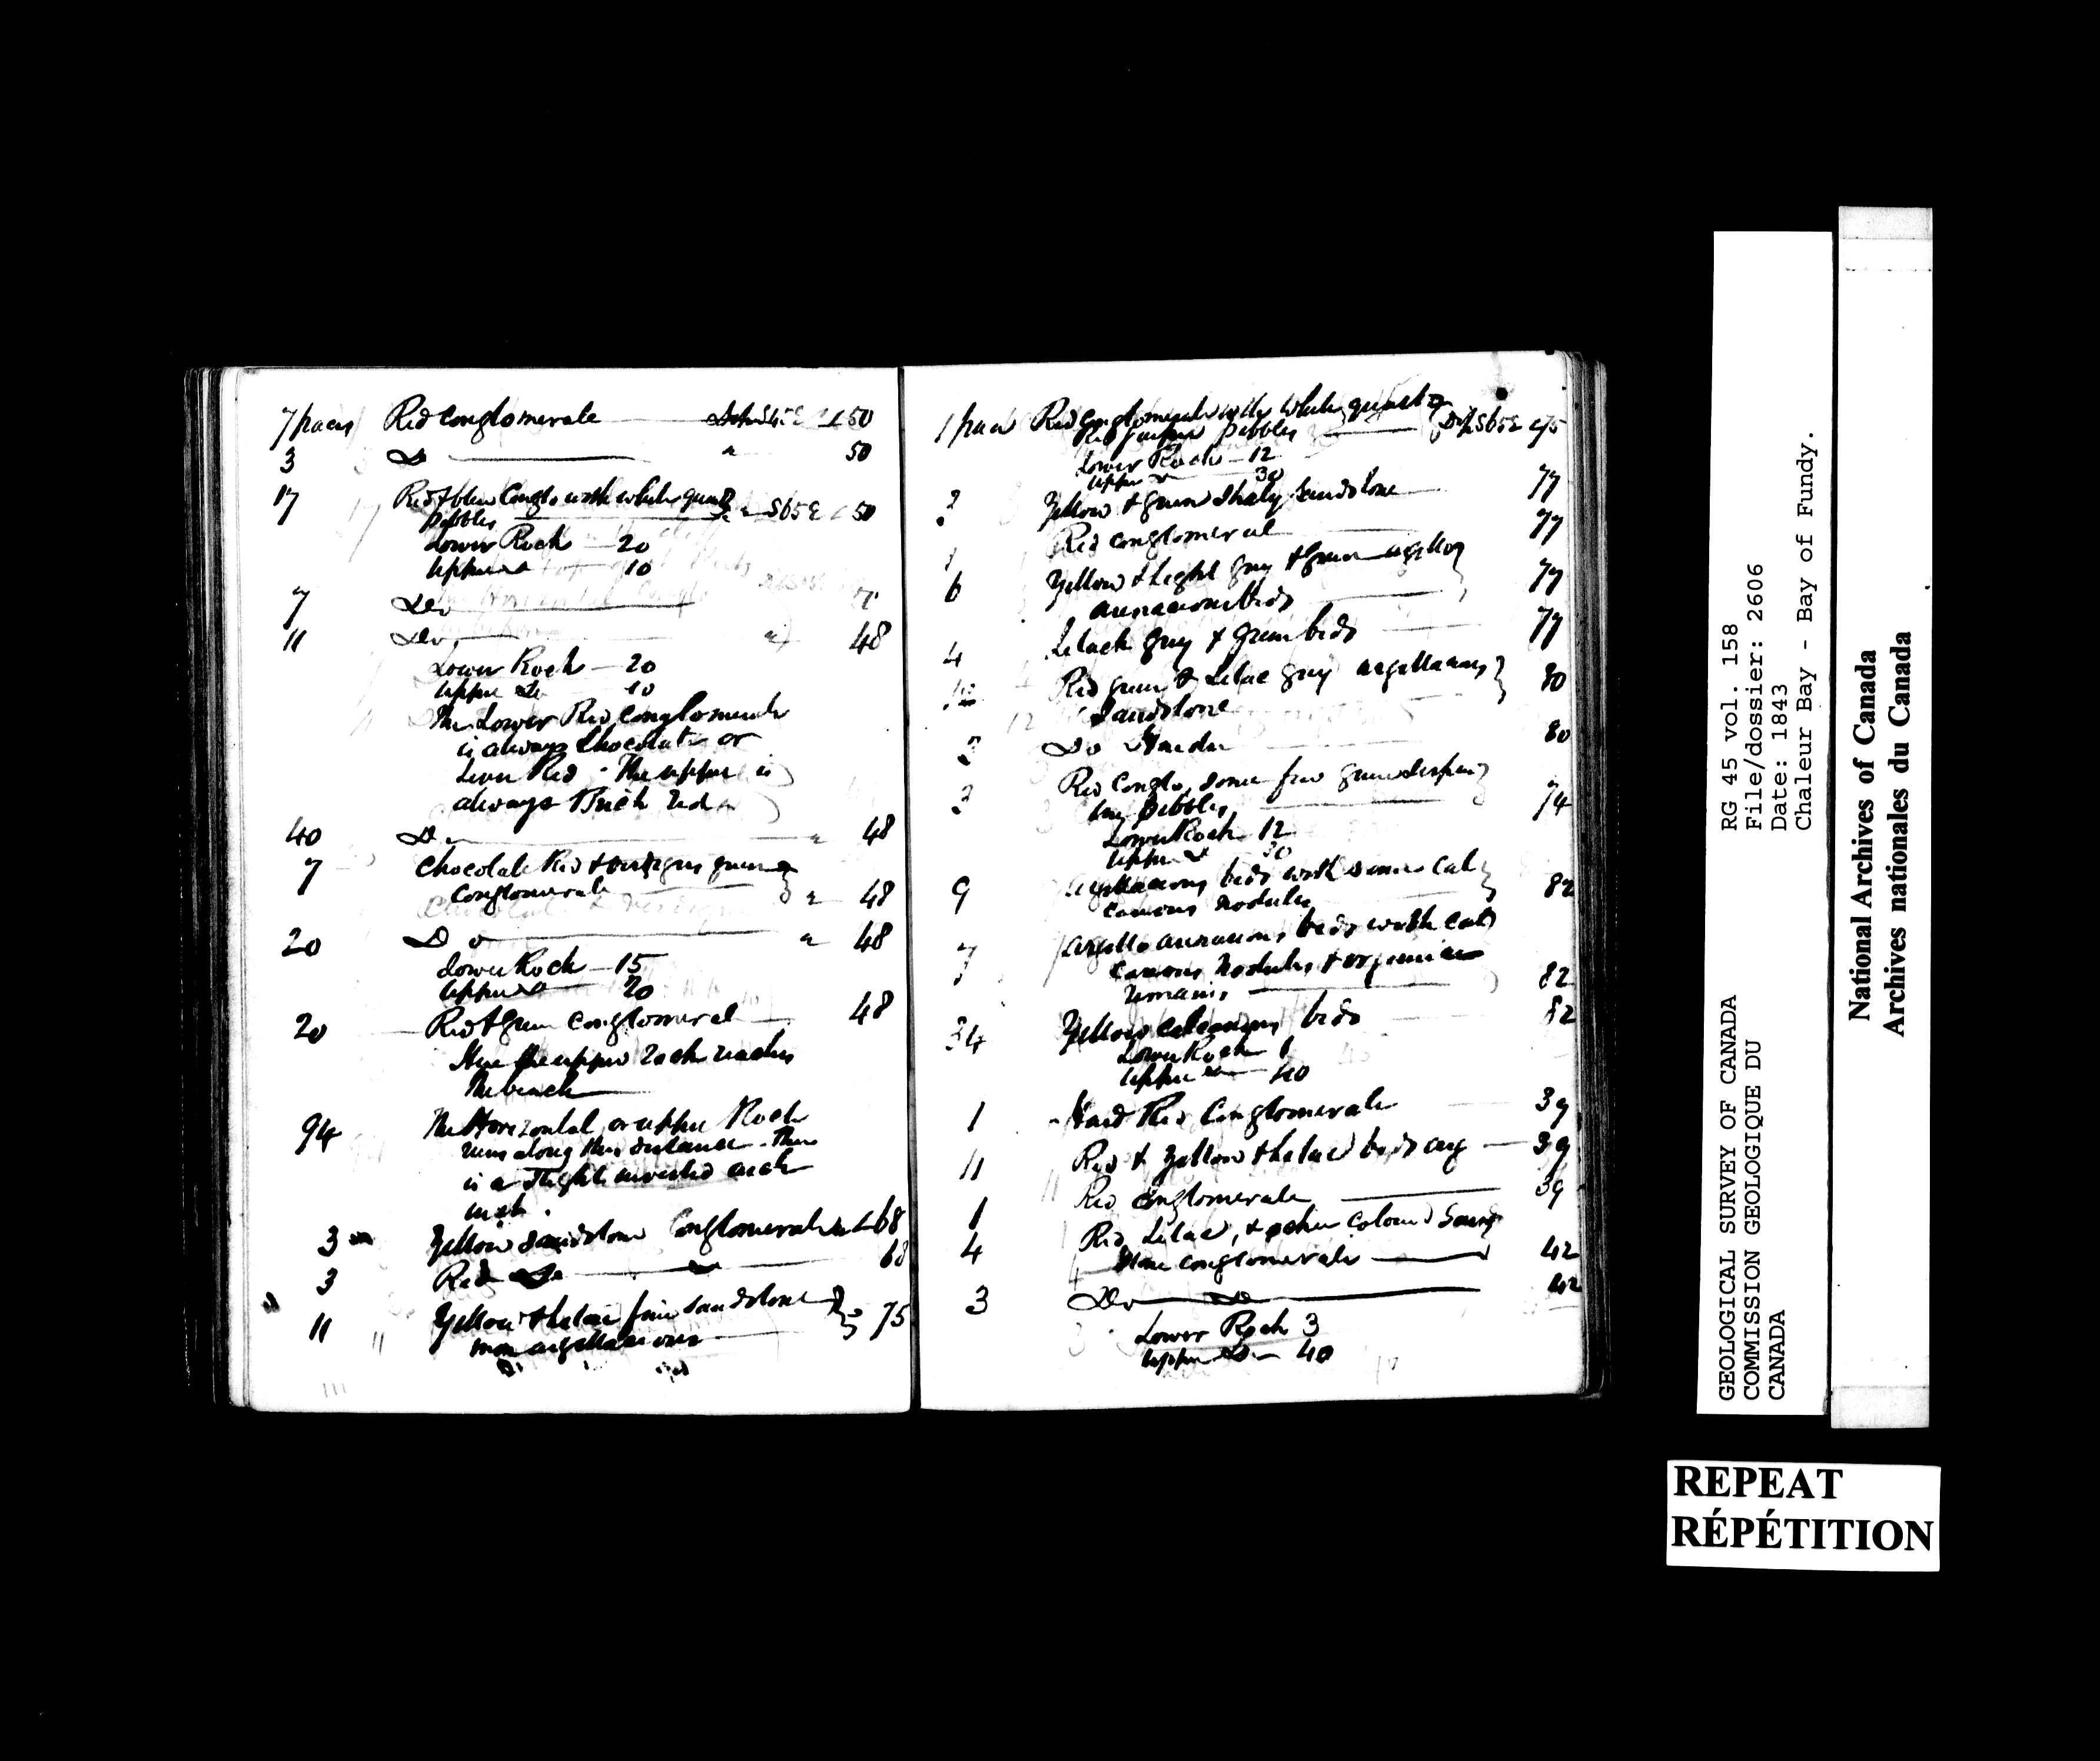 7 paces Red conglomerate 50
3 Do " 50
17 Red & blue Conglo with white quartz
pebbles " S65E 50
Lower Rock 20
Upper Do 10
7 Do
11 Do " 48
Lower Rock 20
Upper Do 10
The Lower Red Conglomerate
is always Chocolate or
Liver Red. The upper is
always Brick Red
40 Do " 48
7 Chocolate Red & verdigris green
Conglomerate " 48
20 Do " 48
Lower Rock 15
Upper Do 20
20 Red & Green conglomerate 48
Here the upper Rock reaches
the beach
94 The Horizontal or upper Rock
runs along this distance. There
is a slight inverted arch
in it.
3 Yellow sandstone Conglomerate 68
3 Red Do 68
11 Yellow & lilac fine sandstone
more argillaceous 75
1 pace Red Conglomerate with white quartz &
Red jasper pebbles Dip S65E 75
Lower Rock 12
Upper Do 30
2 Yellow & green shaly sandstone 77
1 Red conglomerate 77
6 Yellow & light grey & green argillo
arenaceous beds 77
4 Lilack grey & green beds 77
Red green & Lilac grey argillaceous
Sandstone 80
2 Do Harder 80
3 Red Conglo, some few green
pebbles 74
Lower Rock 12
Upper Do 30
9 Argillaceous beds with some cal
careous nodules 82
7 Argillo arenaceous beds with cal
careous nodules & organic
remains 82
34 Yellow calcareous beds 82
Lower Rock 1
Upper Do 40
1 Hard Red Conglomerate 39
11 Red & Yellow & Lilac beds arg 39
1 Red Conglomerate 39
4 Red, Lilac, & ochre coloured Sand
stone conglomerate 42
3 Do Do 42
Lower Rock 3
Upper Do 40
RG 45 vol. 158
File/dossier: 2606
Date: 1843
Chaleur Bay - Bay of Fundy.
GEOLOGICAL SURVEY OF CANADA
COMMISSION GEOLOGIQUE DU
CANADA
National Archives of Canada
Archives nationales du Canada
REPEAT
RÉPÉTITION